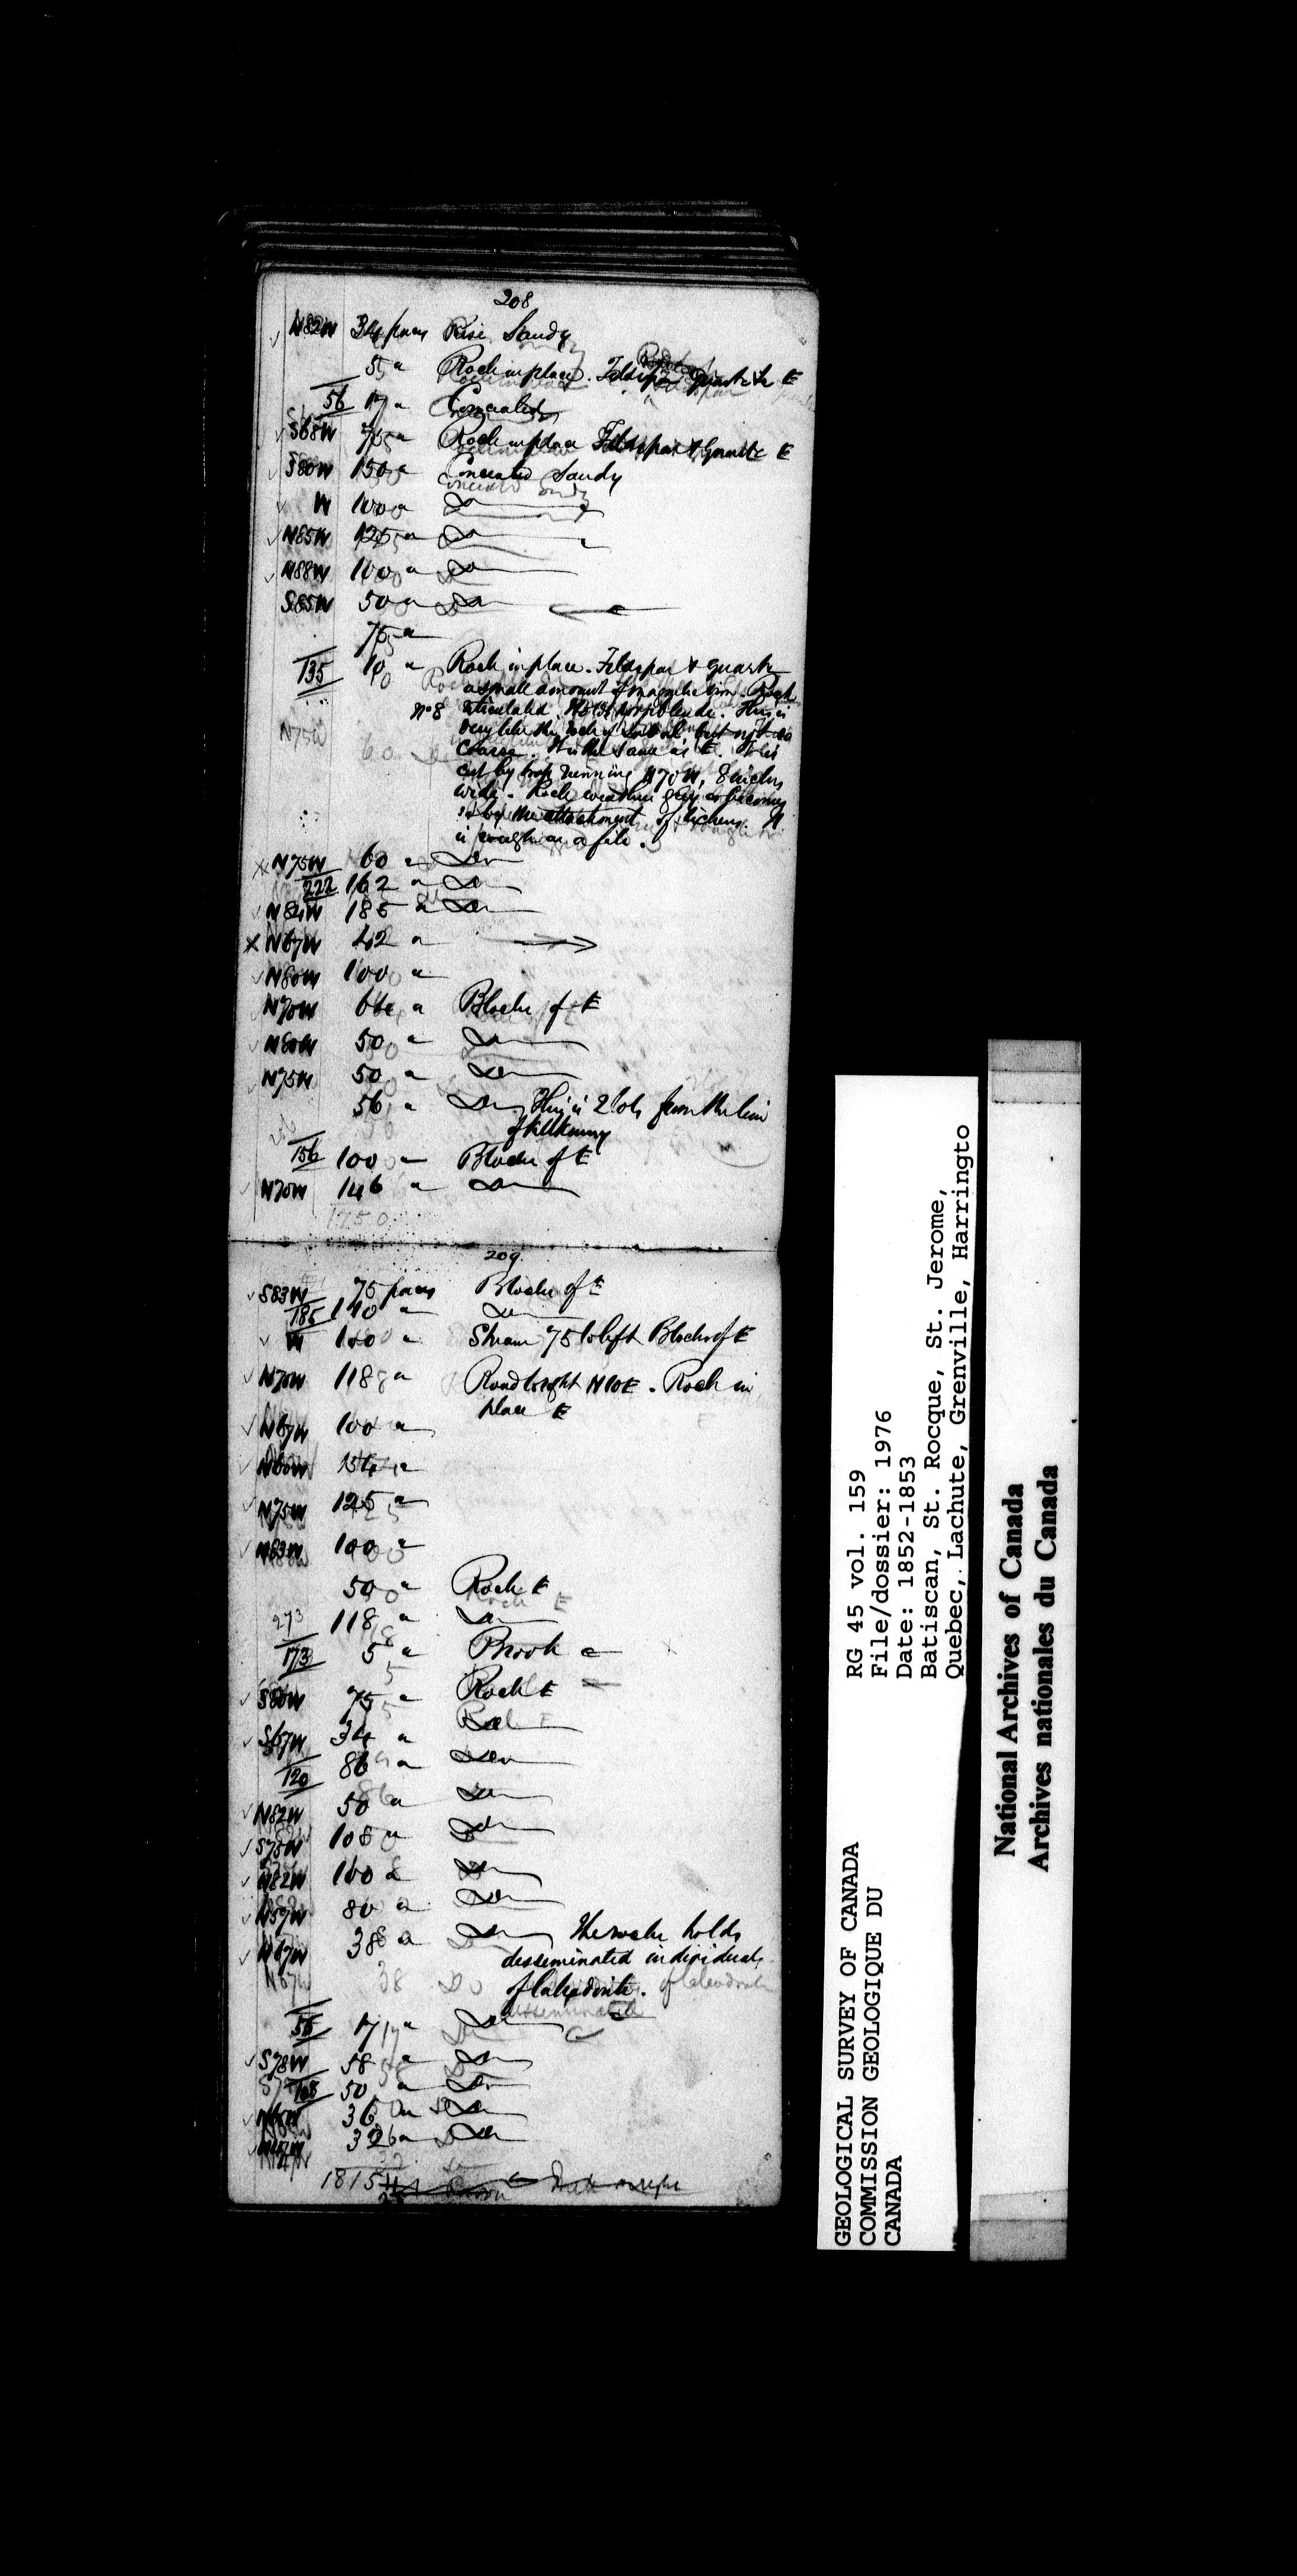 208
N82W 34 paces Rise Sandy
5 " Rock in place. Feldspar Quartz E
56 17 " Concealed
S68W 75 " Rock in place Feldspar & Quartz E
S80W 150 " Concealed Sandy
W 100 " Do
N85W 125 " Do
N88W 100 " Do
S85W 50 " Do
75 "
135 10 " Rock in place. Feldspar & quartz
a small amount of magnetic iron. Rock
No 8 reticulated. No hornblende. This is
very like the rock but not so
coarse. It is the same as E. It is
cut by trap running N70W, 8 inches
wide. Rock weathers grey or becomes
so by the attachment of lichens. It
is rough as a file.
N75W 60 " Do
222 162 " Do
N84W 185 " Do
N67W 42 "
N80W 100 "
N70W 64 " Blocks of E
N80W 50 " Do
N75W 50 " Do
56 " Do This is 2 lots from the line
of Kilkenny
156 100 " Blocks of E
N70W 146 " Do
1750
209
S83W 75 paces Blocks of E
185 140 " Do
W 100 " Stream 75 to left Blocks of E
N70W 118 " Road to right N10E. Rock in
place E
N67W 100 "
N80W 154 "
N75W 125 "
N83W 100 "
50 " Rock E
273 118 " Do
173 5 " Brook
S80W 75 " Rock E
S67W 34 " Do
120 86 " Do
N82W 50 " Do
S75W 108 " Do
N82W 100 " Do
N59W 80 " Do
N67W 38 " Do The rock holds
desseminated individuals
of
55 17 " Do
S78W 58 " Do
108 50 " Do
36 " Do
32 " Do
1815
RG 45 vol. 159
File/dossier: 1976
Date: 1852-1853
Batiscan, St. Rocque, St. Jerome,
Quebec, Lachute, Grenville, Harringto
GEOLOGICAL SURVEY OF CANADA
COMMISSION GEOLOGIQUE DU
CANADA
National Archives of Canada
Archives nationales du Canada